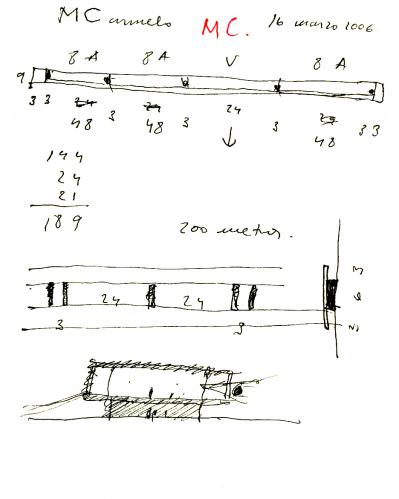 MCarmelo MC. 16 marzo 2006
8 A 8 A V 8 A
9
3 3 24 3 24 3 24 3 24 3 3
48 48 48
144
24
21
189
200 metros.
24 24
3 9